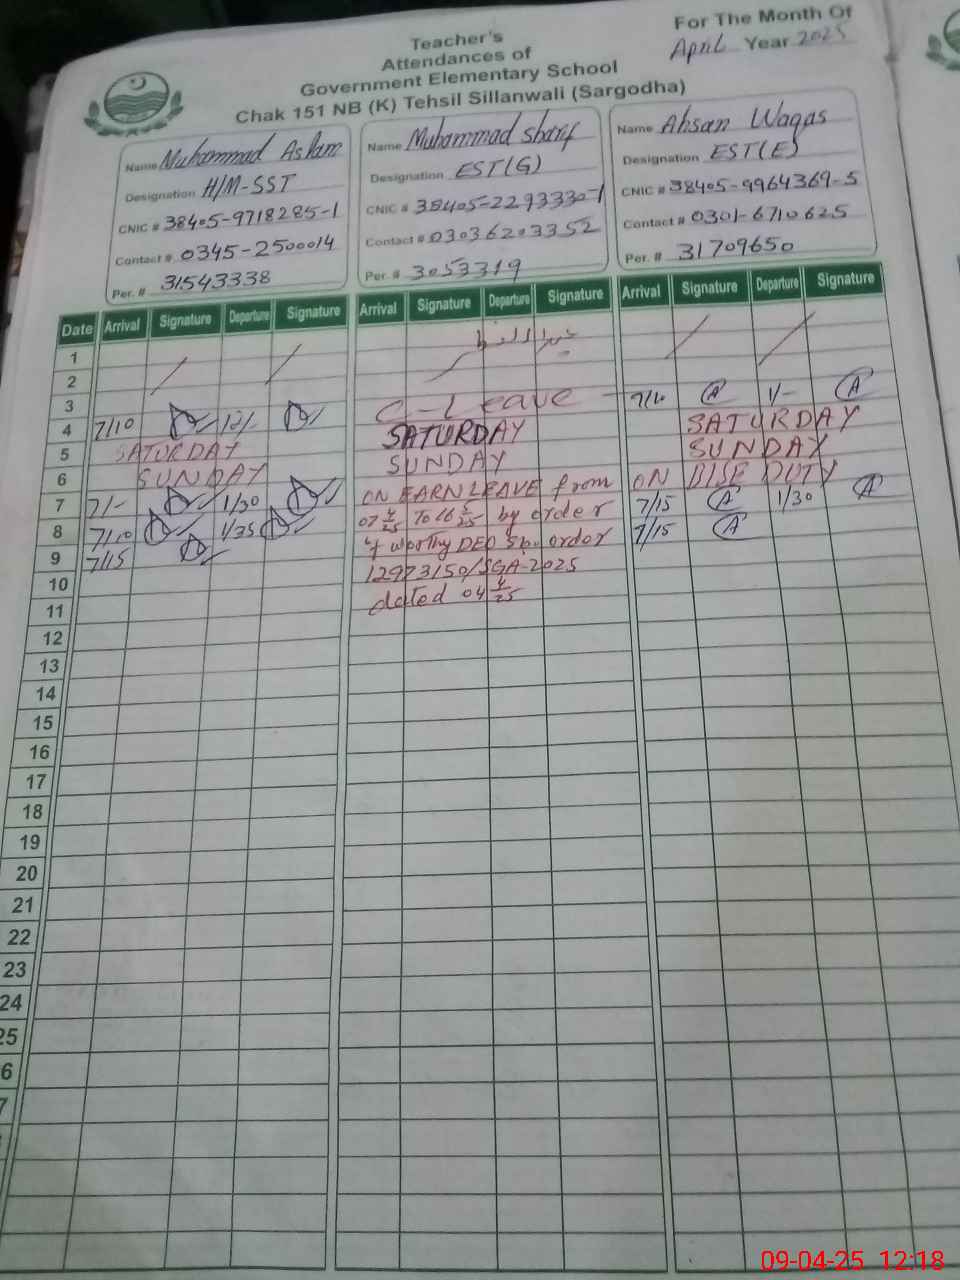 Teacher's
Attendances of
Government Elementary School
Chak 151 NB (K) Tehsil Sillanwali (Sargodha)
For The Month Of
April Year 2025
Name Muhammad Aslam
Designation H/M-SST
CNIC # 38405-9718285-1
Contact # 0345-2500014
Per. # 31543338
Name Muhammad Sharif
Designation EST(G)
CNIC # 38405-2293330-1
Contact # 03036203352
Per. # 3053319
Name Ahsan Waqas
Designation EST(E)
CNIC # 38405-9964369-5
Contact # 0301-6710625
Per. # 31709650
Date Arrival Signature Departure Signature Arrival Signature Departure Signature Arrival Signature Departure Signature
1
2
3 C-Leave 7/10 1/-
4 7/10 12/- SATURDAY SATURDAY
5 SATURDAY SUNDAY SUNDAY
6 SUNDAY ON EARN LEAVE from ON BISE DUTY
7 7/- 1/30 07 4/25 To 16 4/25 by order 7/15 1/30
8 7/10 1/35 of worthy DEO order 7/15
9 7/15 12973150/SGA-2025
10 dated 04 4/25
11
12
13
14
15
16
17
18
19
20
21
22
23
24
25
6
7
09-04-25 12:18